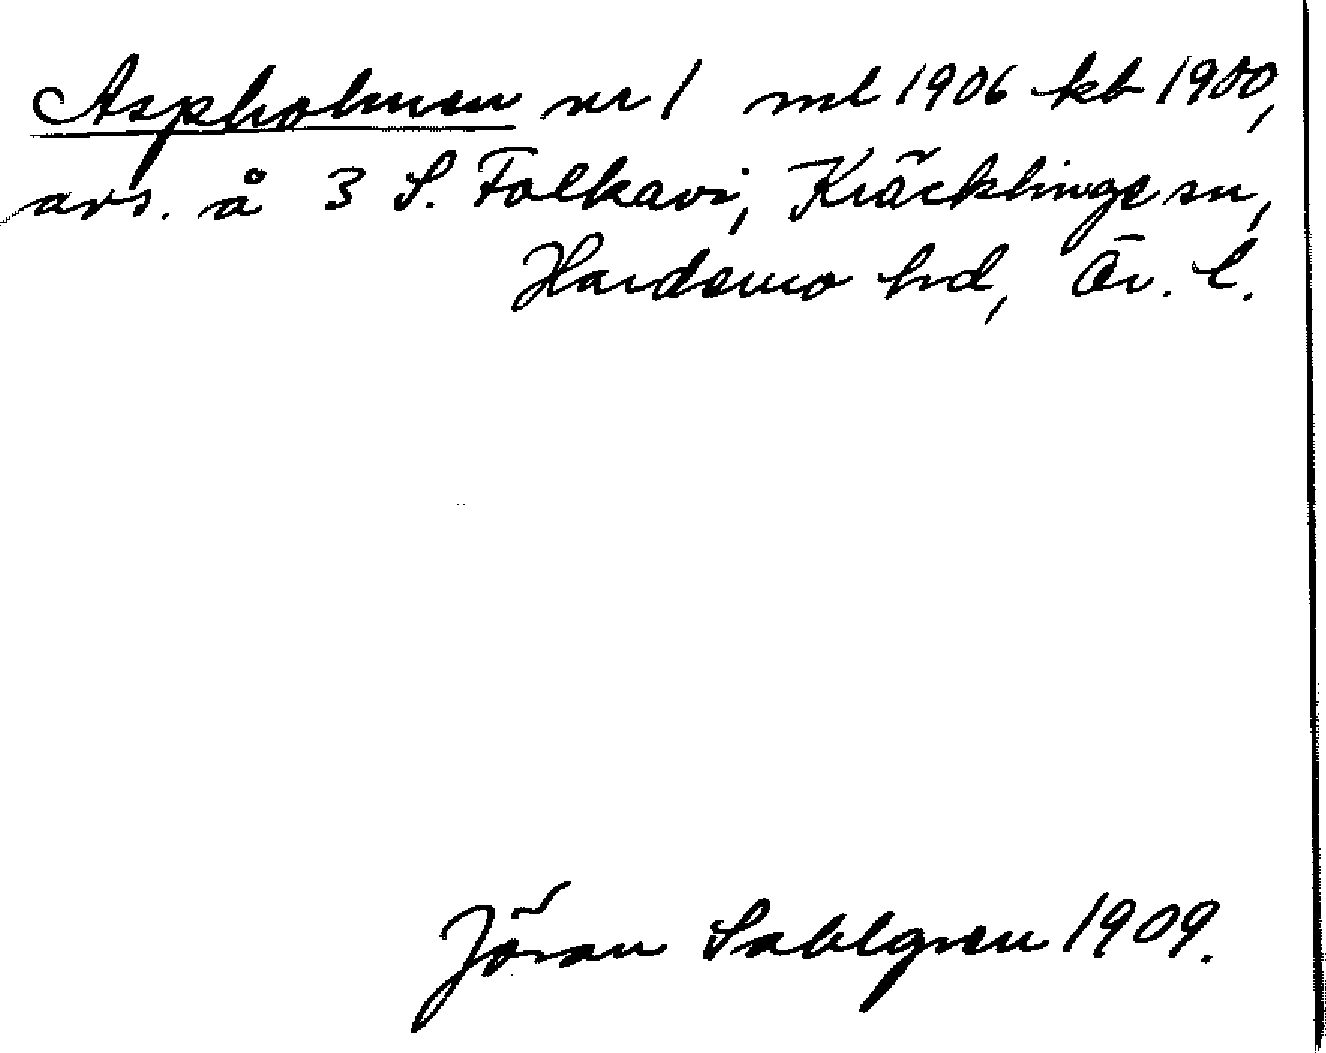 Aspholmen nr 1 ml 1906 kb 1900,
avs. å 3 S. Folkavi, Kräcklinge sn,
Hardemo hd, Ör. l.
Jöran Sahlgren 1909.